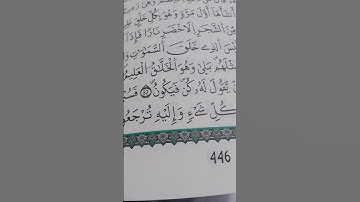 أنشأها أول مرة وهو بكل خلق علي
من الشجر الأخضر نارا فإذا
ليس الذي خلق السموات و
مثلهم بلى وهو الخلاق العليم
أن يقول له كن فيكون فسب
كل شيء وإليه ترجعو
446